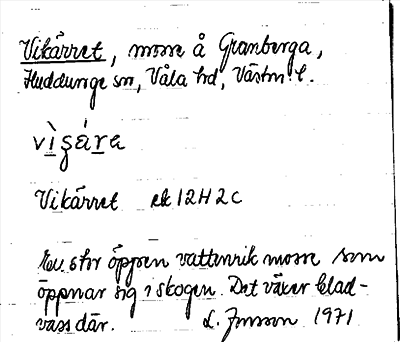 Vikärret, mosse å Granberga,
Huddunge sn, Våla hd, Västm l.
vìgár̲a
Vikärret ek 12H2C
En stor öppen vattenrik mosse som
öppnar sig i skogen. Det växer blad-
vass där. L. Jonsson 1971